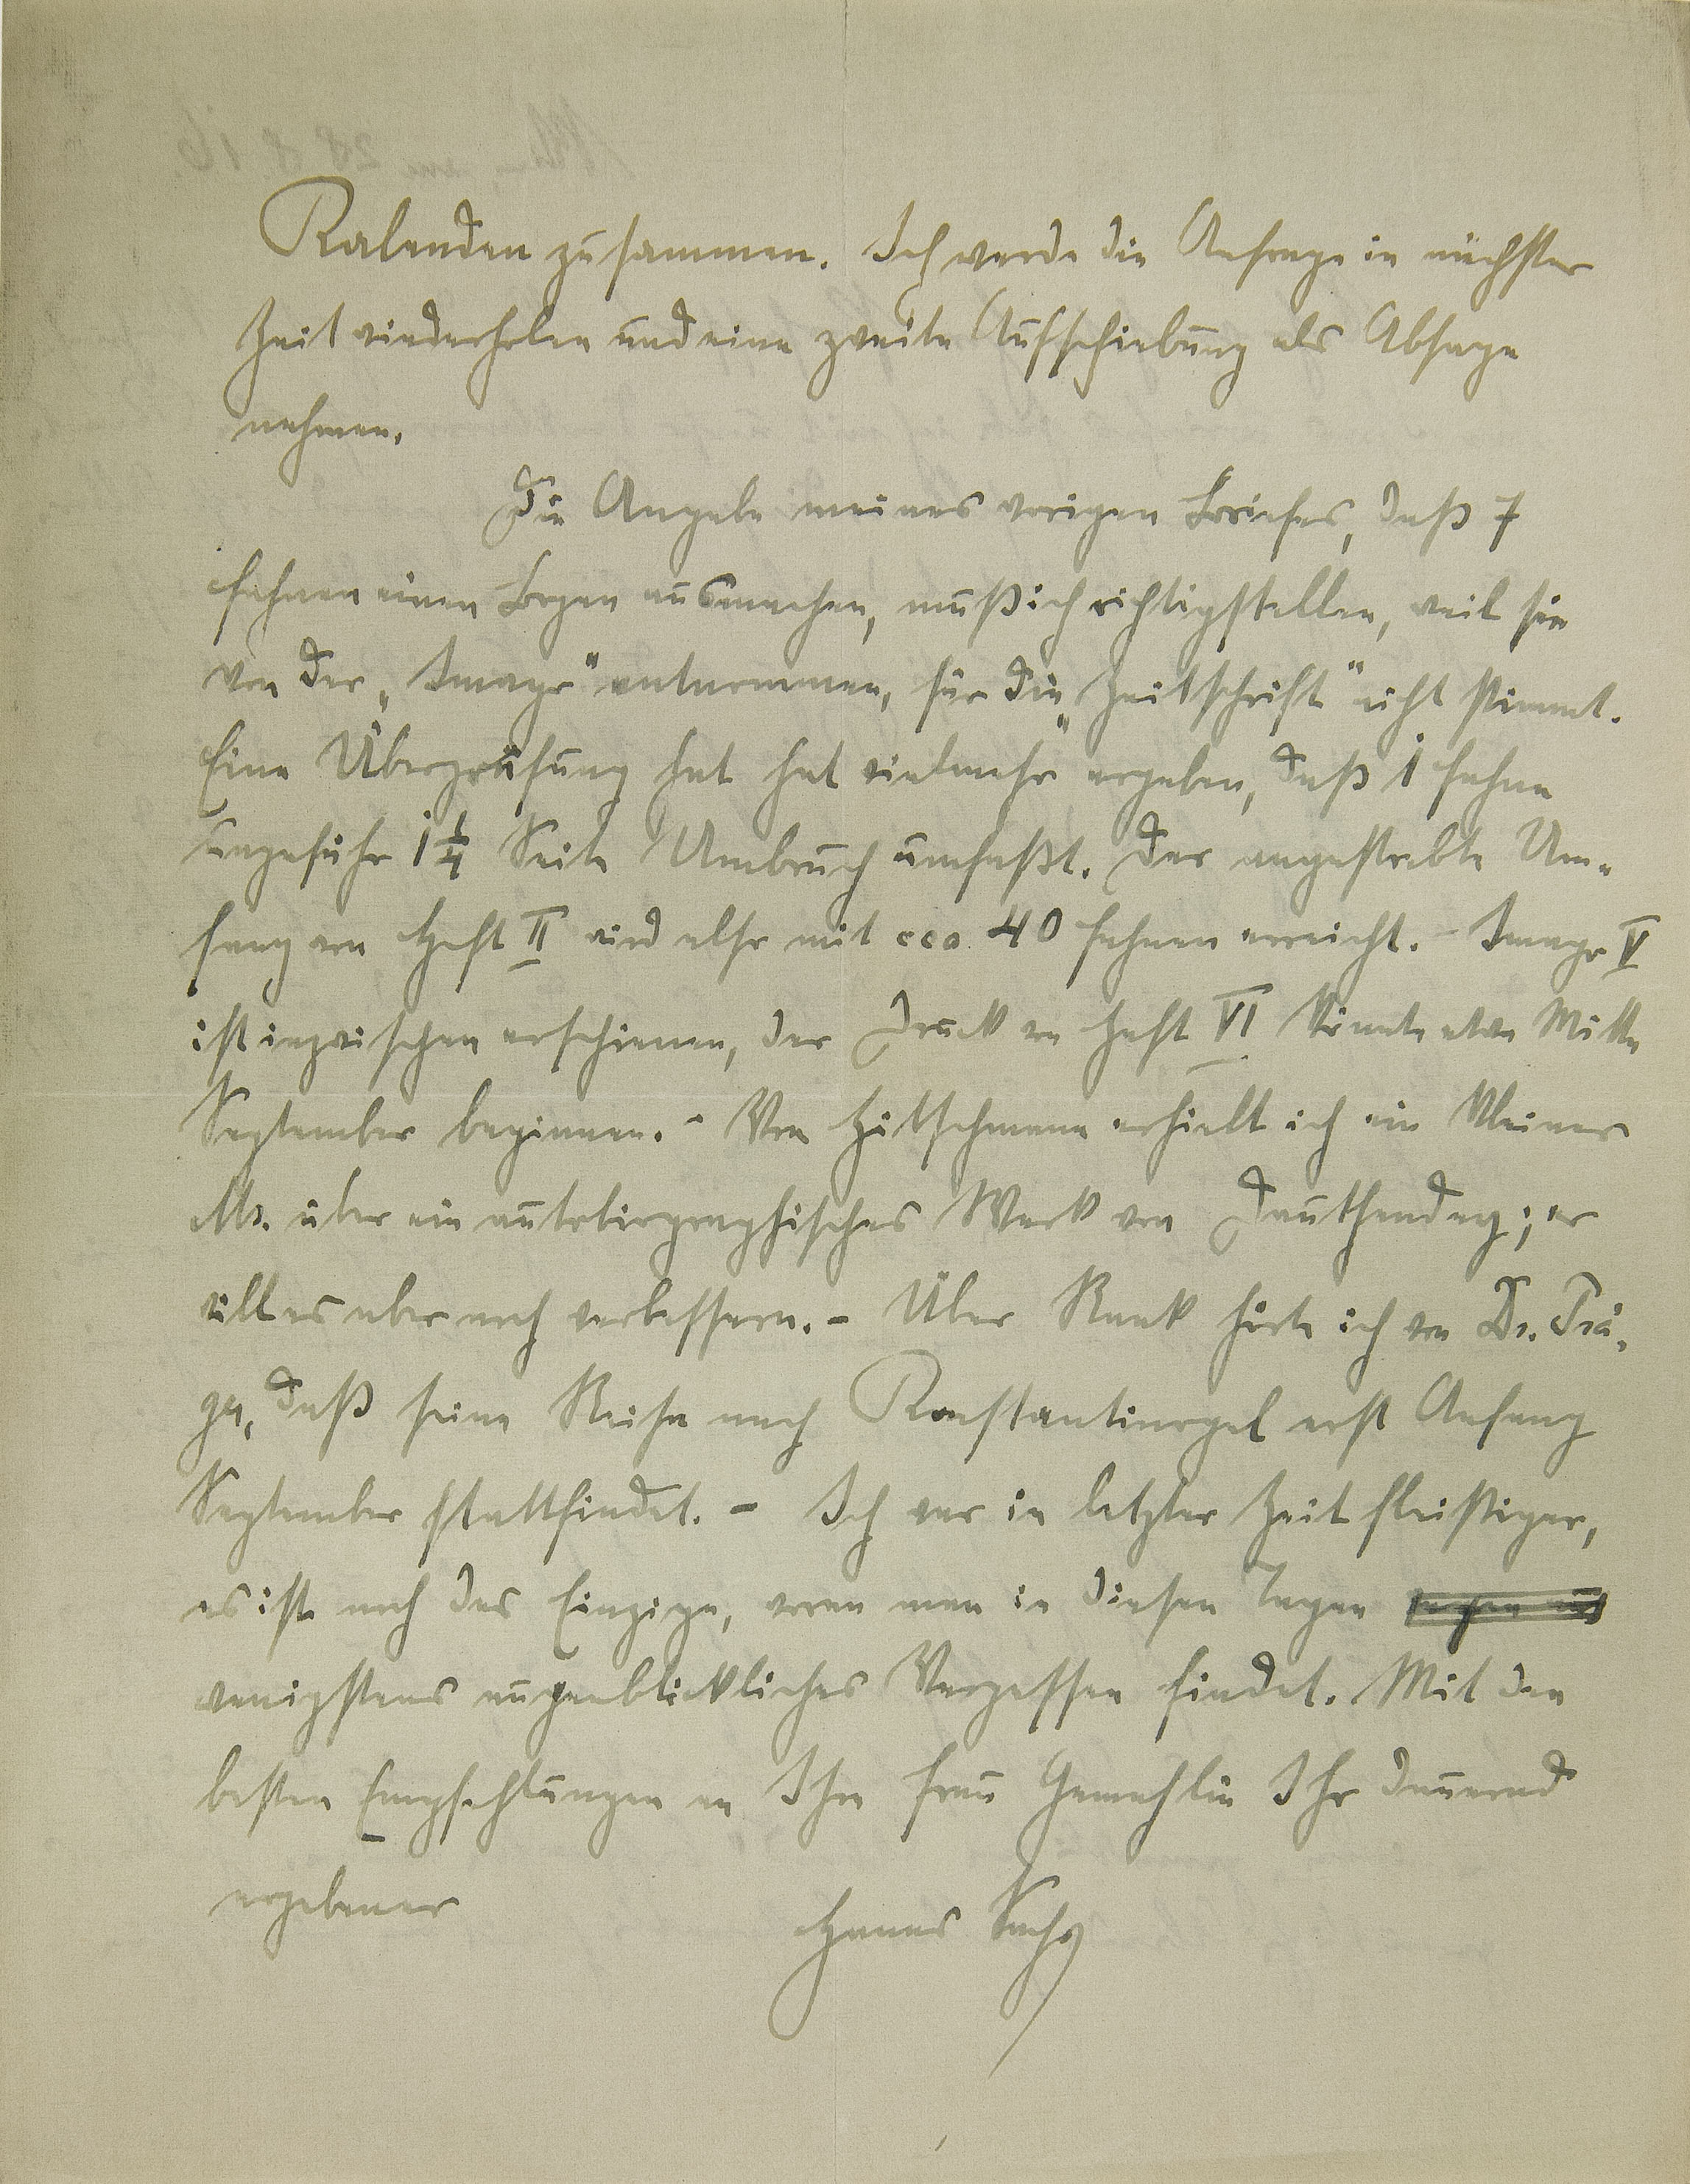 Kalenden zusammen. Ich werde die Anfrage in nächster
Zeit wiederholen und eine zweite Aufschiebung als Absage
nehmen.
Die Angabe meines vorigen Briefes, daß 7
Fahnen einen Bogen ausmachen, muß ich richtigstellen, weil sie
von der „Imago" entnommen, für die „Zeitschrift" nicht stimmt.
Eine Überprüfung hat hat vielmehr ergeben, daß 1 Fahne
ungefähr 1 1/4 Seite Umbruch umfaßt. Der angestrebte Um-
fang von Heft II wird also mit cca. 40 Fahnen erreicht. - Imago V
ist inzwischen erschienen, der Druck von Heft VI könnte etwa Mitte
September beginnen. - Von Hitschmann erhielt ich ein kleines
Ms. über ein autobiographisches Werk von Dauthendey; er
will es aber noch verbessern. - Über Rank hörte ich von Dr.
daß seine Reise nach Konstantinopel erst Anfang
September stattfindet. - Ich war in letzter Zeit fleißiger,
es ist noch das Einzige, woran man in diesen Tagen
wenigstens augenblickliches Vergessen findet. Mit den
besten Empfehlungen an Ihre Frau Gemahlin Ihr dauernd
ergebener
Hanns Sachs